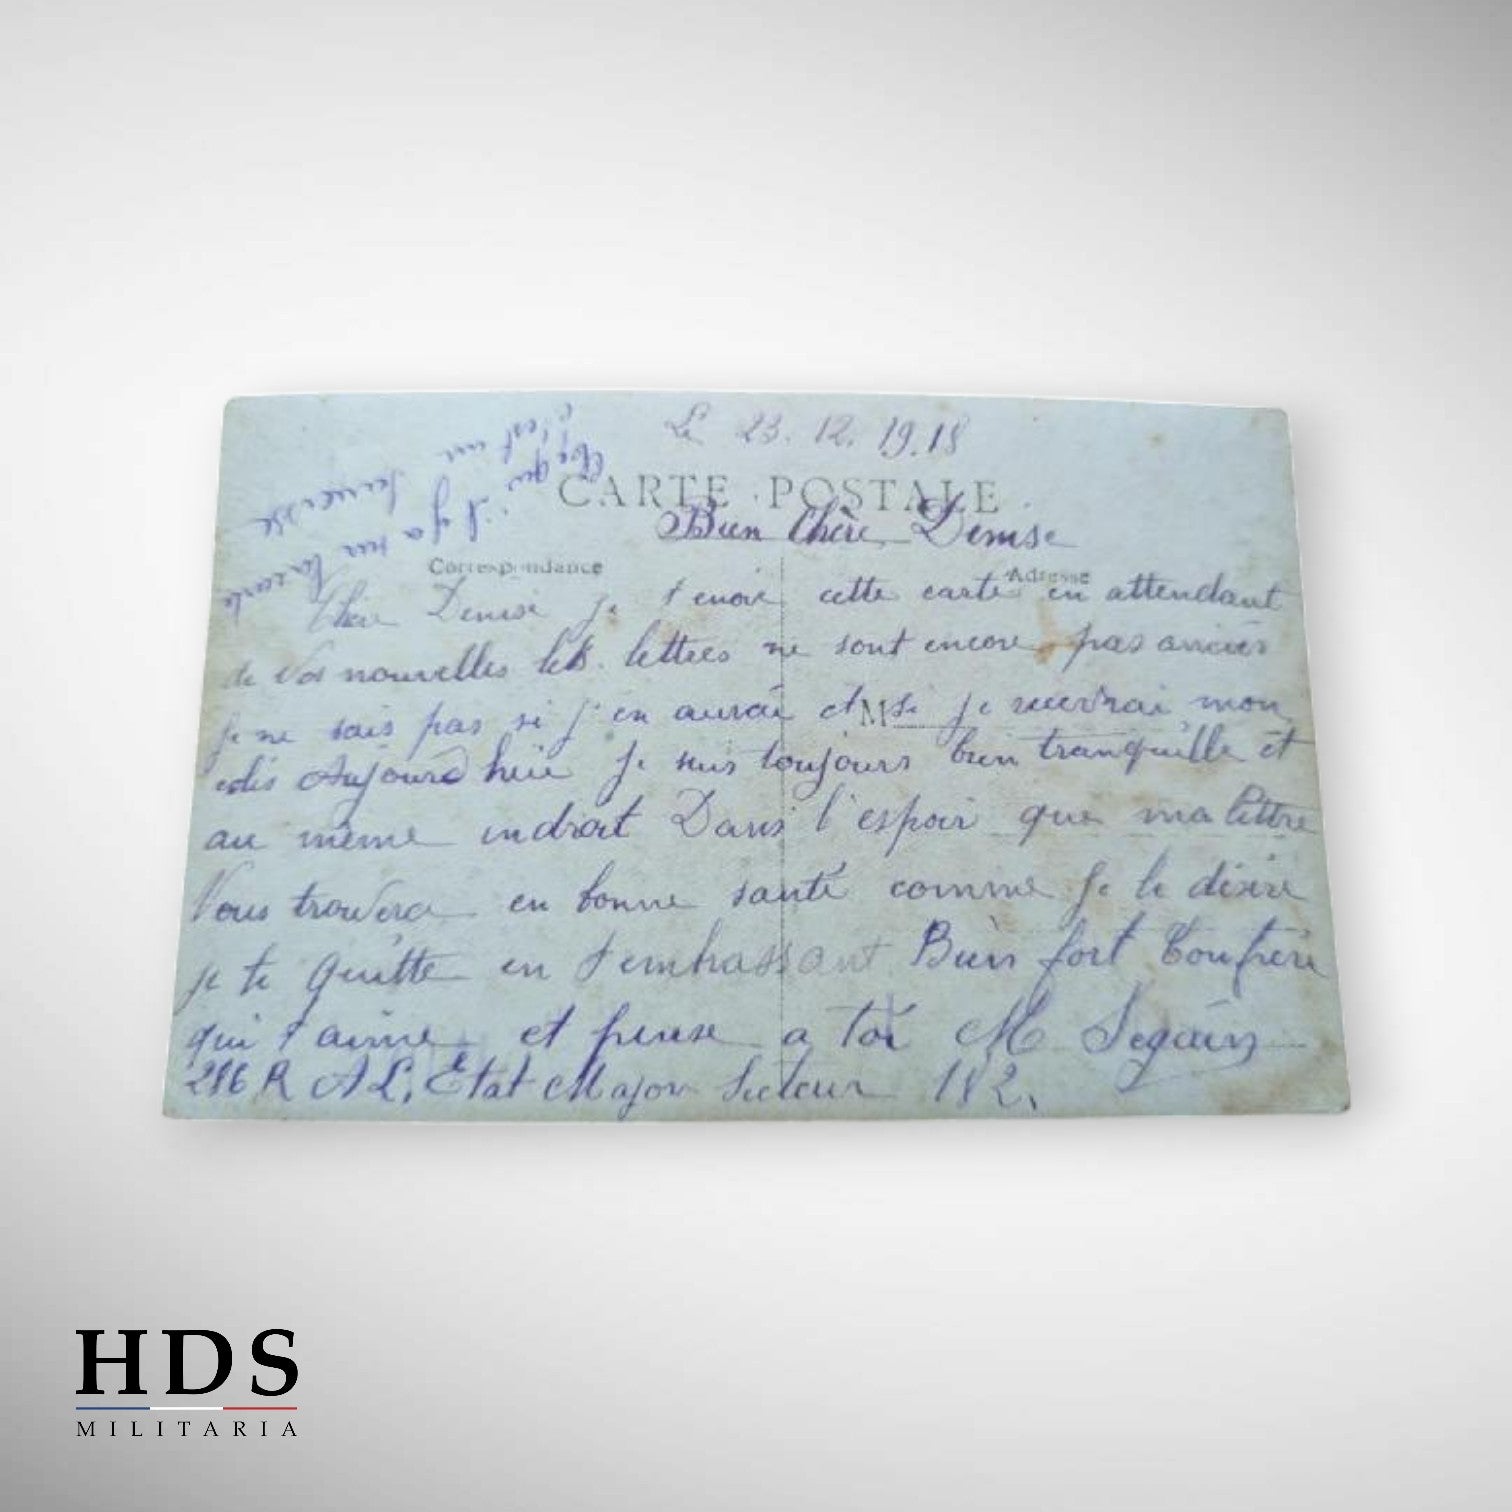 Le 23.12.1918
CARTE POSTALE
Bien Chère Denise
Correspondance
Adresse
Chère Denise je t'envoie cette carte en attendant
de vos nouvelles les lettres ne sont encore pas
je ne sais pas si j'en aurai et si je recevrai mon
M
colis Aujourd huie je suis toujours bien tranquille et
au même endroit Dans l'espoir que ma lettre
Vous trouvera en bonne santé comme je le désire
je te quitte en t'embrassant Bien fort Ton frère
qui t'aime et pense a toi M Segain
286 R A L. Etat Major Secteur 182.
qui il y a sur la carte
c'est une
HDS
MILITARIA